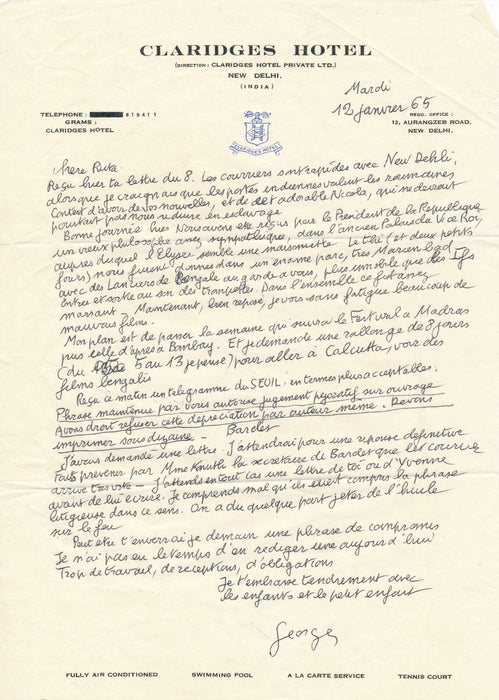 CLARIDGES HOTEL
(DIRECTION: CLARIDGES HOTEL PRIVATE LTD.)
NEW DELHI.
(INDIA)
Mardi
12 janvier 65
TELEPHONE: 619411
GRAMS:
CLARIDGES HOTEL
REGD. OFFICE:
12, AURANGZEB ROAD,
NEW DELHI.
CLARIDGES HOTEL
Chère Ruta.
Reçu hier ta lettre du 8. Les courriers sont rapides avec New Dehli,
alors que je craignais que les postes indiennes valent les roumaines
Content d'avoir de vos nouvelles, et de det adorable Nicola, qui ne devrait
pourtant pas nous réduire en esclavage
Bonne journée hier Nous avons été reçus par le Président de la République
un vieux philosophe assez sympathique, dans l'ancien Palais du Vice Roi,
auprès duquel l'Elysée semble une maisonnette. Le thé (et deux petits
fours) nous furent donnés dans un énorme parc, très Marienbad
avec des Lanciers de Bengale du garde à vous, plus immobile que des Ifs
Entrée et sortie au son des trompettes. Dans l'ensemble ce fut assez
marrant - Maintenant, bien reposé, je vois sans fatigue beaucoup de
mauvais films.
Mon plan est de passer la semaine qui suivra le Festival à Madras
puis celle d'après à Bombay. Et je demande une rallonge de 8 jours
(du 5 au 13 je pense) pour aller à Calcutta, voir des
films bengalis
Reçu ce matin un télégramme du SEUIL, en termes plus acceptables:
Phrase maintenue par vous autorise jugement péjoratif sur ouvrage
Avons droit refuser cette dépréciation par auteur même. Devons
imprimer sous dizaine - Bardet
J'avais demandé une lettre. J'attendrai pour une réponse définitive
Fais prévenir par Mme Knuth la secrétaire de Bardet que les courriers
arrive très vite - J'attends en tout cas une lettre de toi ou d'Yvonne
avant de lui écrire. Je comprends mal qu'ils aient compris la phrase
litigieuse dans ce sens. On a du quelque part jeter de l'huile
sur le feu
Peut être t'enverrai je demain une phrase de compromis
Je n'ai pas eu le temps d'en rédiger une aujourd'hui
Trop de travail, de réceptions, d'obligations
Je t'embrasse tendrement avec
les enfants et le petit enfant
Georges
FULLY AIR CONDITIONED SWIMMING POOL A LA CARTE SERVICE TENNIS COURT